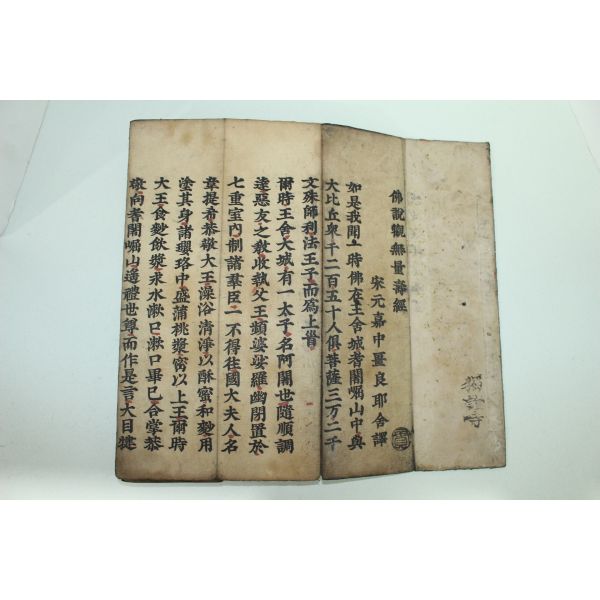 佛說觀無量壽經
宋元嘉中畺良耶舍譯
如是我聞一時佛在王舍城耆闍崛山中與
大比丘衆千二百五十人俱菩薩三万二千
文殊師利法王子而爲上首
爾時王舍大城有一太子名阿闍世隨順調
達惡友之敎收執父王頻婆娑羅幽閉置於
七重室內制諸羣臣一不得往國大夫人名
韋提希恭敬大王澡浴清淨以酥蜜和麨用
塗其身諸瓔珞中盛蒲桃漿密以上王爾時
大王食麨飮漿求水漱口漱口畢已合掌恭
敬向耆闍崛山遙禮世尊而作是言大目犍